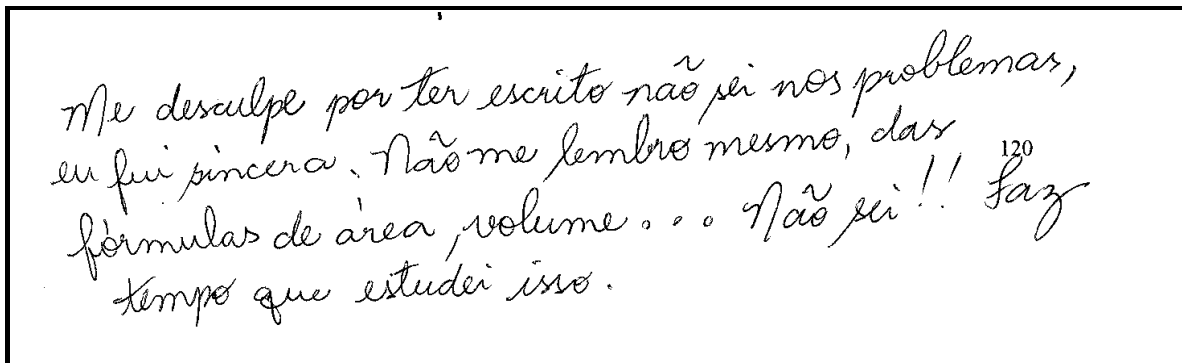 Me desculpe por ter escrito não sei nos problemas,
eu fui sincera. Não me lembro mesmo, das
120
fórmulas de área, volume... Não sei!! Faz
tempo que estudei isso.